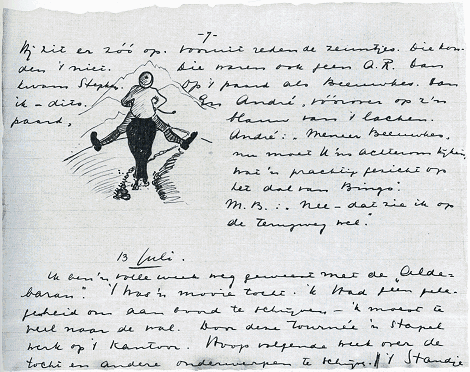 -7-
Hij zit er zóó op. Vooruit reden de zeuntjes. Die kon-
den 't niet. Die waren ook geen A.R. van
Op 't paard als Beeuwkes. Dan
ik - dito. En André, vóórover op z'n
paard, blauw van 't lachen.
André: "Meneer Beeuwkes,
nu moet U 'n achterom kijken,
wat 'n prachtig gezicht op
het dal van Bingo."
M.B.: "Nee - dat zie ik op
de terugweg wel."
13 Juli.
Ik ben 'n volle week weg geweest met de "Alde-
baran". 't Was 'n mooie tocht. 'k Had geen gele-
genheid om aan boord te schrijven - 'k moest te
veel naar de wal. Door deze tournée 'n stapel
werk op 't kantoor. Hoop volgende week over de
tocht en andere onderwerpen te schrijven. 't Standje